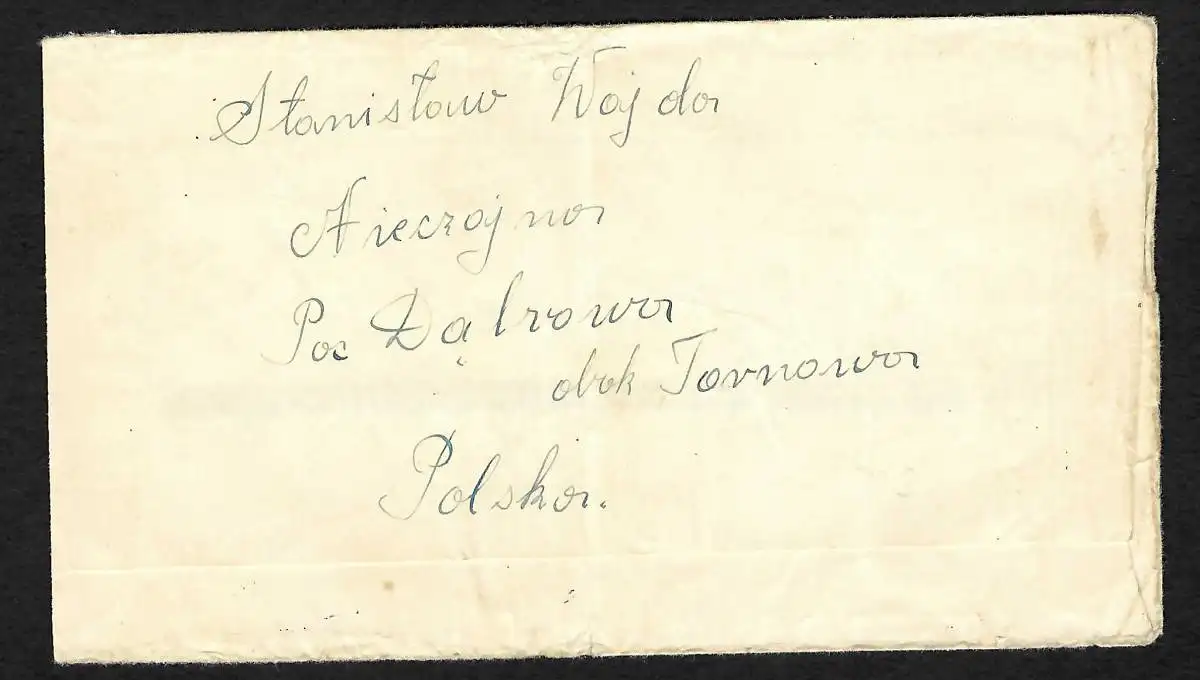 Stanisław Wajda
Nieczajna
Poc Dąbrowa
obok Tarnowa
Polska.